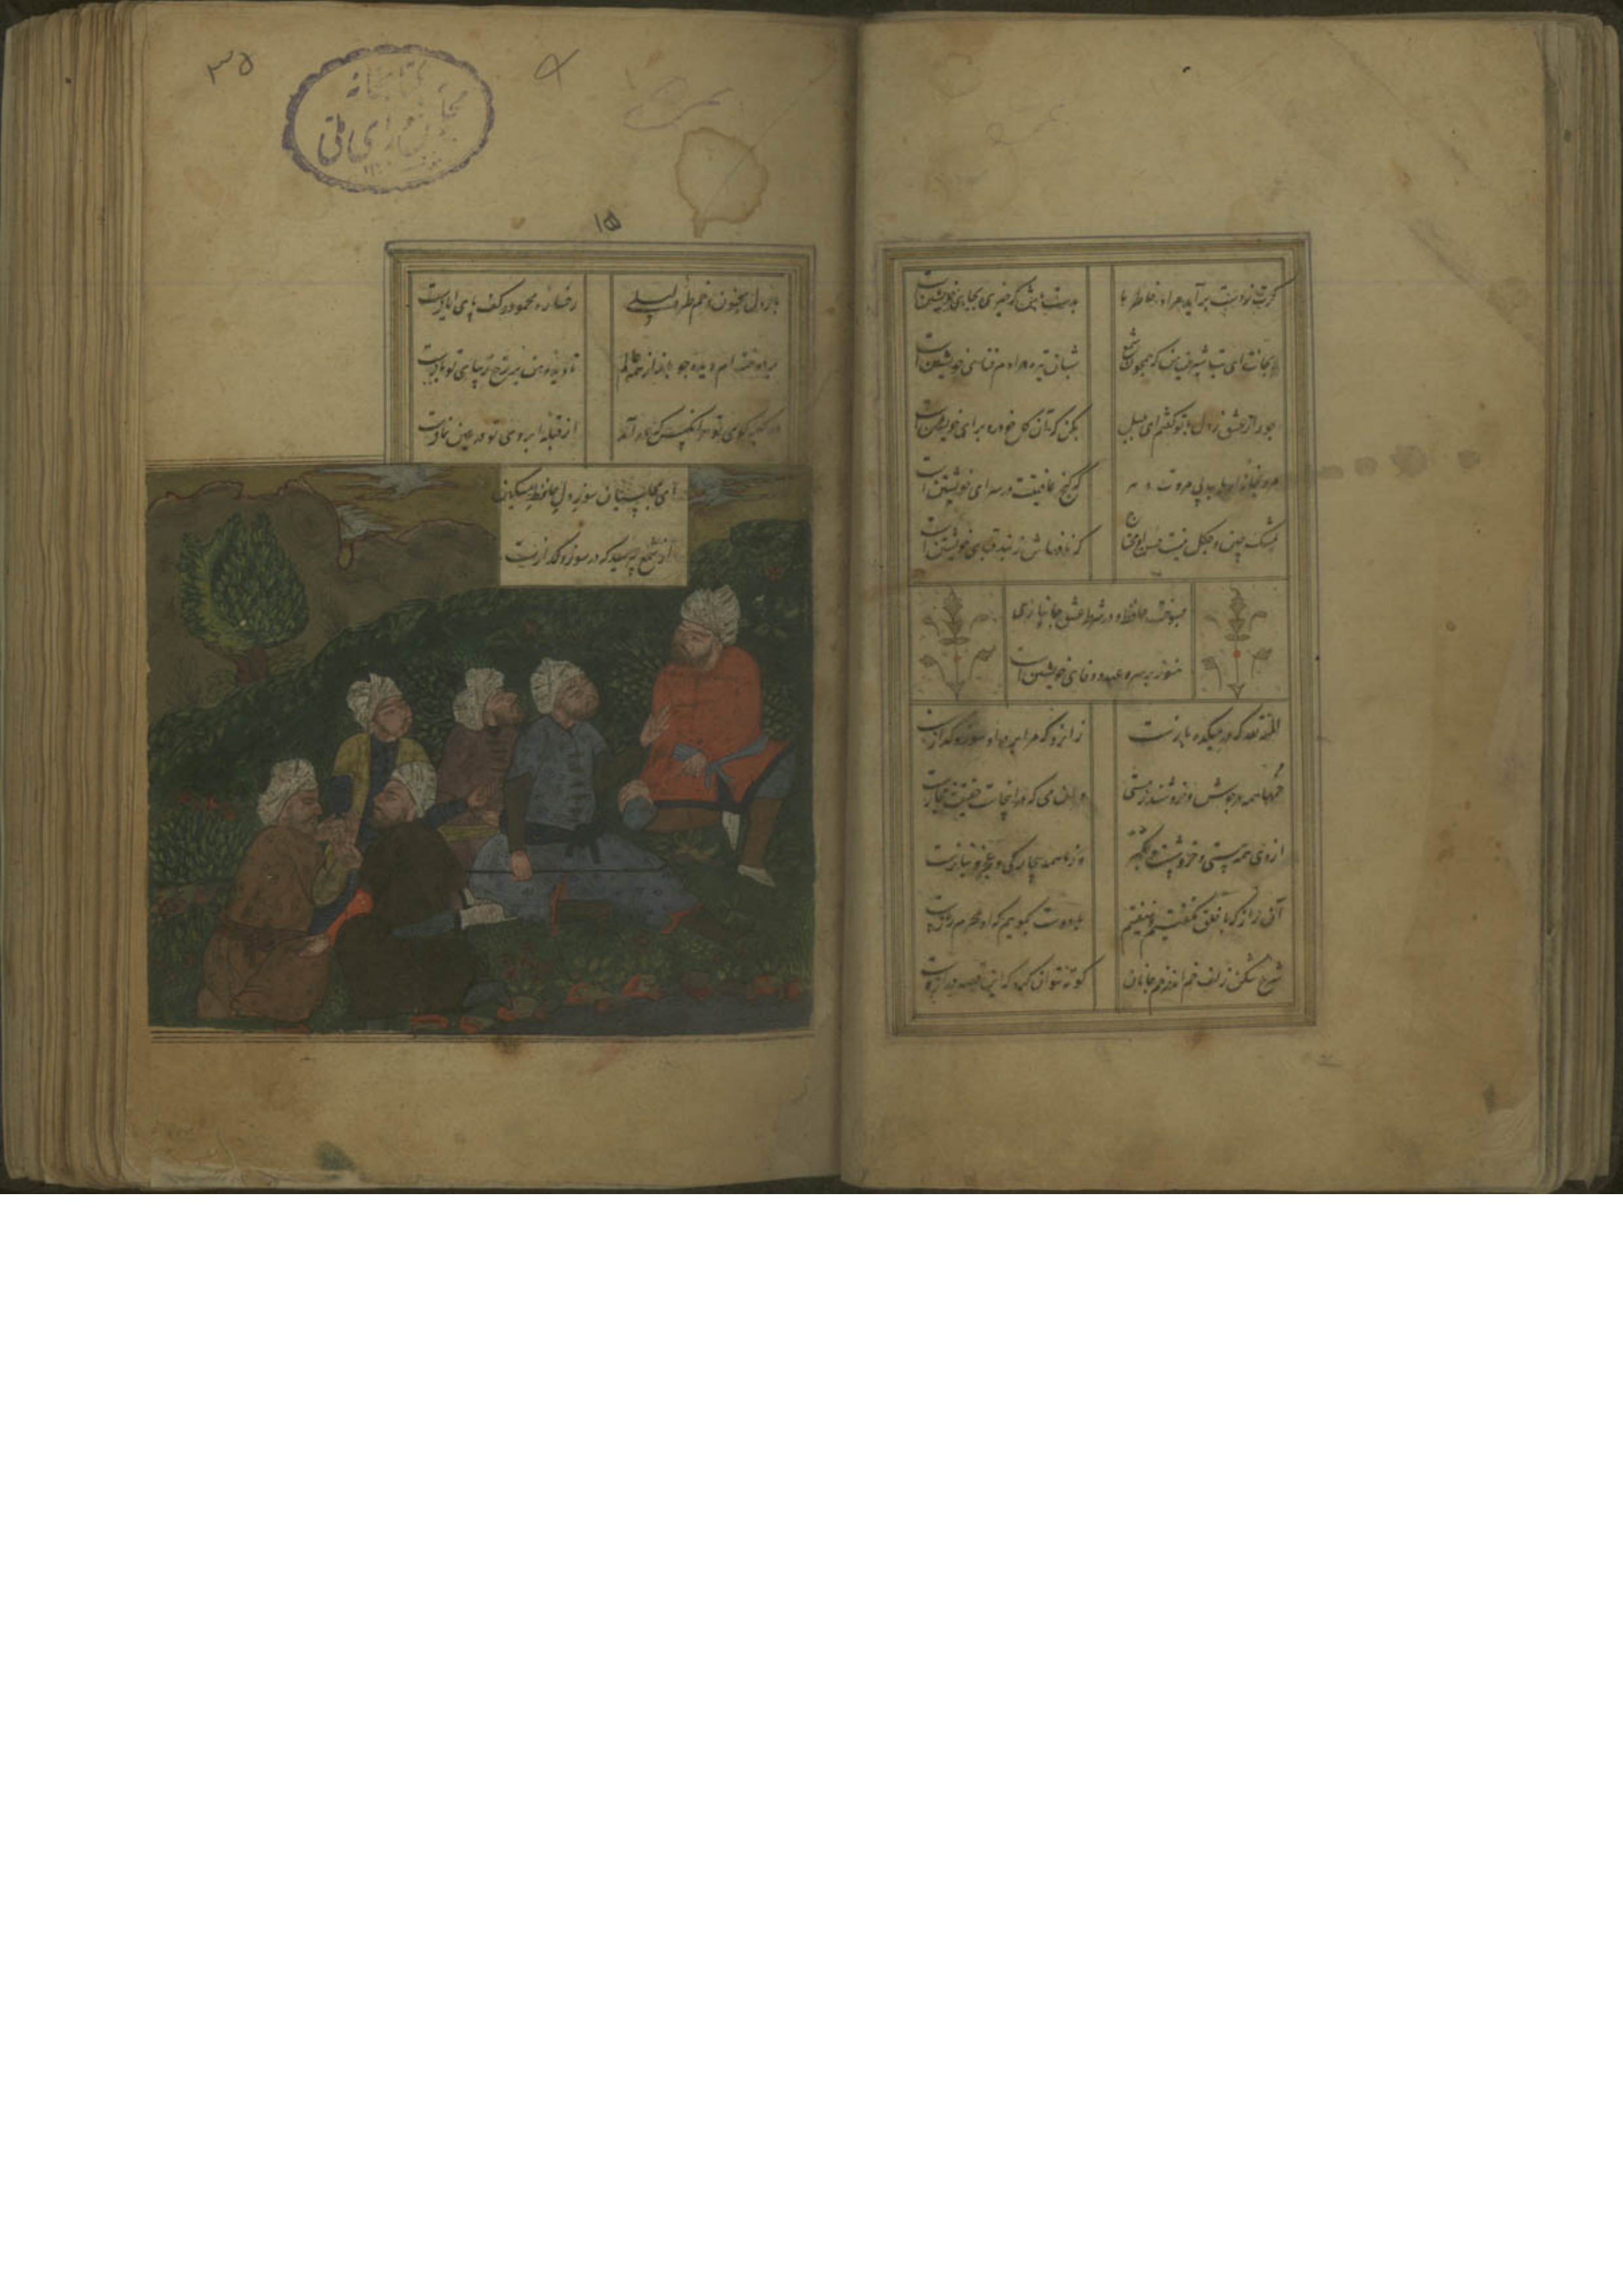 گرت ز دست برآید مراد خاطر ما
بدست باش که خیری بجای خویشتن است
بجانت ای بت شیرین من که همچون شمع
شبان تیره مرادم فنای خویشتن است
چو رای عشق زدی با تو گفتم ای بلبل
مکن که آن گل خودرو برای خویشتن است
مرو بخانه ارباب بی مروت دهر
که کنج عافیت در سرای خویشتن است
بمشک چین و چگل نیست حسن او محتاج
که نافهاش ز بند قبای خویشتن است
بسوخت حافظ و در شرط عشق جانبازی
هنوز بر سر عهد و وفای خویشتن است
المنة لله که در میکده بازست
زانرو که مرا بر در او سوز و گدازست
خمها همه در جوش و خروشند ز مستی
وان می که در انجاست حقیقت نه مجازست
از وی همه مستی و خروشست و تکبر
وز ما همه بیچارگی و عجز و نیازست
آن راز که با خلق نگفتیم و نهفتیم
با دوست بگوییم که او محرم رازست
شرح شکن زلف خم اندر خم جانان
کوته نتوان کرد که این قصه درازست
۳۵
کتابخانه
مجلس شورای ملی
۱۵
بار دل مجنون و خم طره لیلی
رخساره محمود و کف پای ایازست
بردوخته ام دیده چو باز از همه عالم
تا دیده من بر رخ زیبای تو بازست
در کعبه کوی تو هر آنکس که درآید
از قبله ابروی تو در عین نمازست
ای مجلسیان سوز دل حافظ مسکین
از شمع بپرسید که در سوز و گدازست